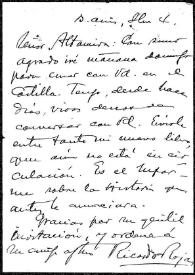 B. Aires, 4.
Señor Altamira: Con sumo
agrado iré mañana
para cenar con Vd. en el
Castilla. Tengo, desde hace
días, vivos deseos de
conversar con Vd. Envíole
entre tanto mi nuevo libro,
que aún no está en cir-
culación. Es el Infor-
me sobre la historia que
ante le anunciara.
Gracias por su gentil
invitación, y ordene a
su amigo affmo Ricardo Rojas